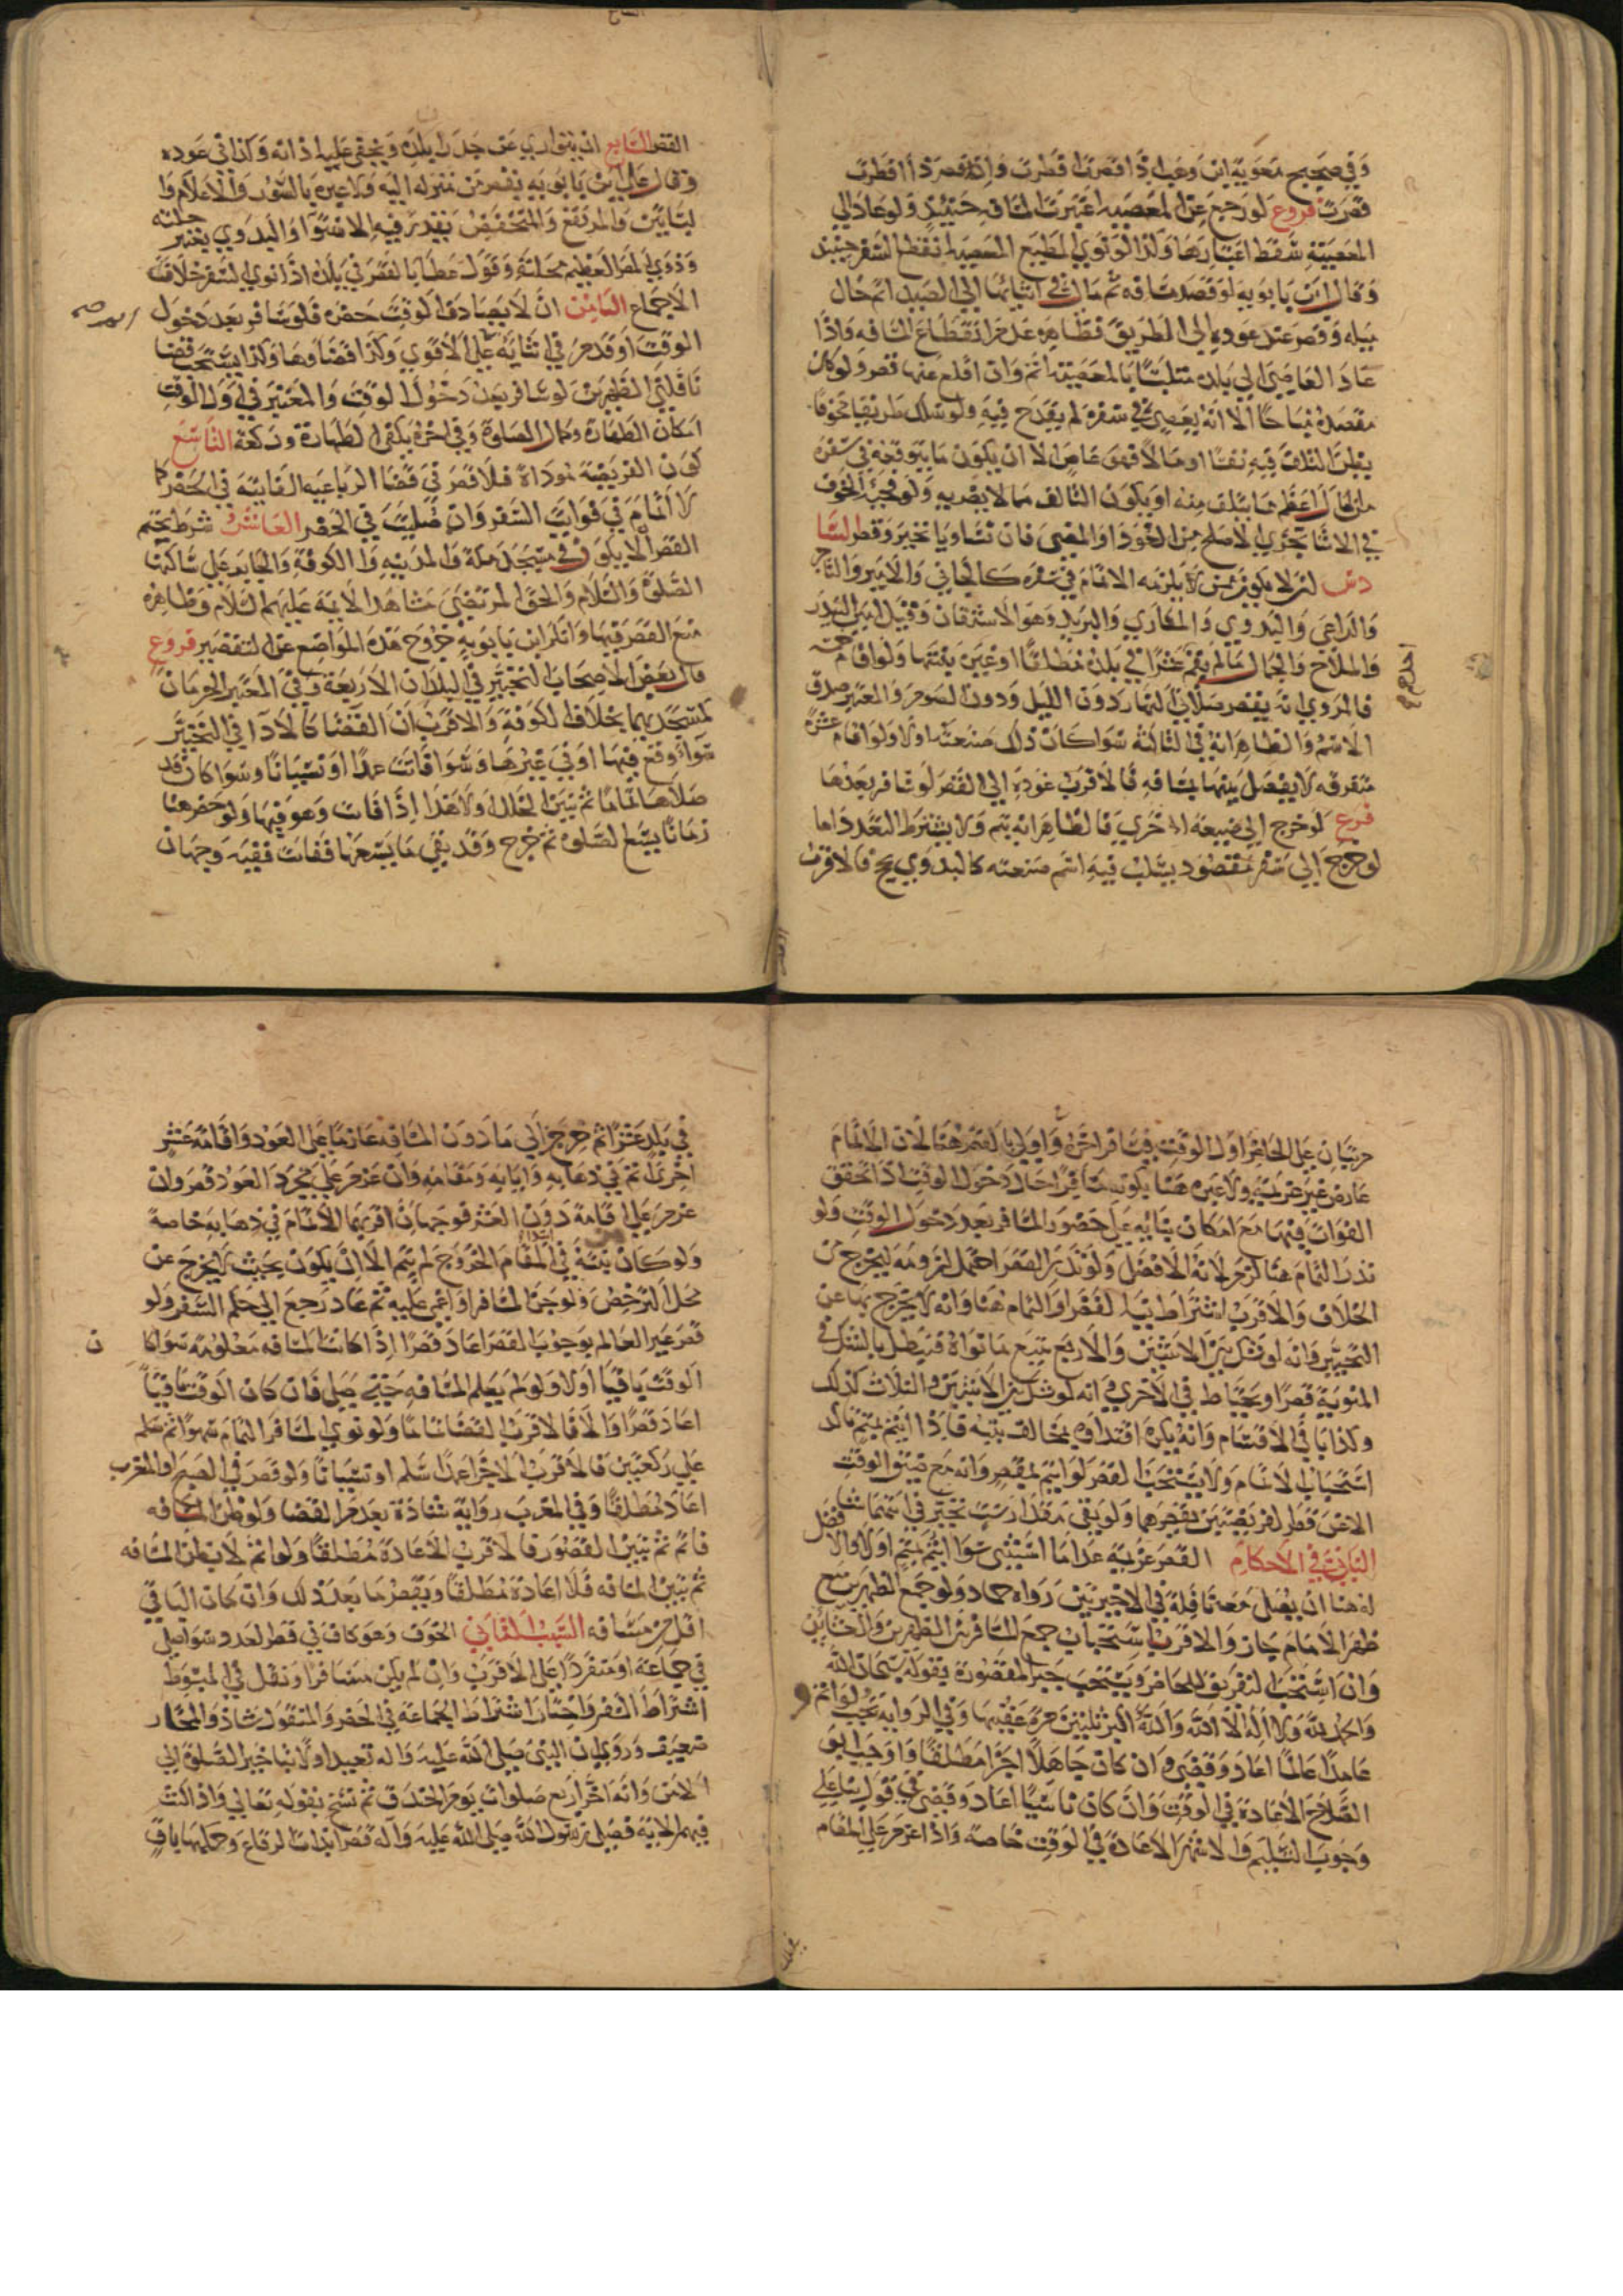 وَفي صحيح معوية ابن وهب اذا قصرت افطرت واذا افطرت
قصرت فروع لو رجع عن المعصيه اعتبرت المسافه حينئذ ولو عاد الي
المعصية سقط اعتبارها وكذا لو نوي المطيع المعصيه انقطع السفر حينئذ
وقال ابن بابويه لو قصد مسافه ثم مال في اثنائها الي الصيد اتم حال
ميله وقصر عند عوده الي الطريق فظاهره عدم انقطاع المسافه واذا
عاد العاصي الي بلده متلبسا بالمعصيته اتم وان اقلع عنها قصر ولو كان
مقصده مباحا الا انه يعصي في سفره لم يقدح فيه ولو سلك طريقا مخوفا
يظن التلف فيه نفسا او مالا فهو عاص الا ان يكون ما يتوقعه في سفره
من المال اعظم مما يتلف منه او يكون التالف مما لا يضر به ولو فجئه الخوف
في الاثنا تحري الاصلح من العود او المضي فان تساويا تخير وقصر السا
دس ان لا يكون ممن يلزمه الاتمام في سفره كالجابي والامير والتاجر
والراعي والبدوي والمكاري والبريد وهو الاشتقان وقيل امين البيدر
والملاح والجمال ما لم يقم عشرا في بلده مطلقا او غيره بنيتها ولو اقام خمسه
فالمروي انه يقصر صلاتي النهار دون الليل ودون الصوم والمعتبر صدق
الاسم والظاهر انه في الثالثة سوا كان ذلك صنعته اولا ولو اقام عشرة
متفرقه لا يفصل بينها مسافه فالاقرب عوده الي القصر لو سافر بعدها
فرع لو خرج الي ضيعة اخري فالظاهر انه يتم ولا يشترط التعدد اما
لو خرج الي سفر مقصود يسلب فيه اسم صنعته كالبدوي يحج فالاقرب
القصر السابع ان يتواري عنه جدران بلده ويخفي عليه اذانه وكذا في عوده
وقال علي ابن بابويه يقصر من منزله اليه ولا عبره بالسور والاعلام وا
لبساتين والمرتفع والمنخفض يقدر فيه الاستوا والبدوي يعتبر حلته
وذوي المصر العظيم محلته وقول عطا بالقصر في بلده اذا نوي السفر خلاف
الاجماع الثامن ان لا يصادف الوقت حضره فلو سافر بعد دخول
الوقت او قدم في اثنائه اتم علي الاقوي وكذا قضاوها وكذا يستحب قضا
نافلتي الظهرين لو سافر بعد دخول الوقت والمعتبر في اول الوقت
امكان الطهارة وكمال الصلوة وفي اخره يكفي الطهارة وركعة التاسع
كون الفريضة موداة فلا قصر في قضا الرباعيه الفايتة في الحضر كما
لا اتمام في فوايت السفر وان صليت في الحضر العاشر شرط تحتم
القصر الا يكون في مسجد مكة والمدينه والكوفة والحاير علي ساكنها
الصلوة والسلام والحق المرتضي مشاهد الايمة عليهم السلام وظاهره
منع القصر فيها وانكر ابن بابويه خروج هذه المواضع عن التقصير فروع
قال بعض الاصحاب التخيير في البلدان الاربعة وفي المعتبر الحرمان
كمسجديهما بخلاف الكوفة والاقرب ان القضا كالادآ في التخيير
سوآء وقع فيها او في غيرها وسوا فاتت عمدا او نسيانا وسوا كان قد
صلاها تماما ثم تبين الخلل اولا هذا اذا فات وهو فيها ولو حضر هنا
زمانا يسع الصلوه ثم خرج وقد بقي ما يسعها ففات ففيه وجهان
مرتبان علي الحاضر اول الوقت فيسافر اخره واولي بالقصر هنا لان الاتمام
عارض غير عزيمة ولا عبره هنا بكونه مسافرا حال دخول الوقت اذا تحقق
الفوات فيها مع امكان بنائه علي حضور المسافر بعد دخول الوقت ولو
نذر التمام هنا لزم لانه الافضل ولو نذر القصر احتمل لزومه ليخرج من
الخلاف والاقرب اشتراط نية القصر او التمام هنا وانه لا يخرج بها عن
التخيير وانه لو شك بين الاثنين والاربع يتبع ما نواه فيبطل بالشك في
المنوية قصرا ويحتاط في الاخري وانه لو شك بين الاثنين والثلاث كذلك
وكذا باقي الاقسام وانه يكره اقتداوه بمخالف نيته فاذا ائتم بمتم تاكد
استحباب الاتمام ولا يستحب القصر لو ائتم بمقصر وانه مع ضيق الوقت
الا عن قصر الفريضتين يقصرهما ولو بقي مقدار ست تخير في ايتهما شا فصل
الثاني في الاحكام القصر عزيمة عدا ما استثني سوا ائتم بمتم اولا والاولي
له هنا ان يصلي معه نافلة في الاخيرتين رواه حماد ولو جمع الظهرين مع
ظهر الامام جاز والاقرب استحباب جمع المسافر بين الظهرين والعشائين
وان استحب التفريق للحاضر ويستحب جبر المقصورة بقوله سبحان الله
والحمد لله ولا اله الا الله والله اكبر ثلثين مرة عقيبها وفي الرواية يجب ولو اتم
عامدا عالما اعاد وقضي وان كان جاهلا اجزا مطلقا واوجب ابو
الصلاح الاعادة في الوقت وان كان ناسيا اعاد وقضي في قول بنا علي
وجوب التسليم والاشهر الاعادة في الوقت خاصه واذا عزم علي المقام
في بلد عشرا ثم خرج الي ما دون المسافه عازما علي العود واقامة عشر
اخري اتم في ذهابه وايابه ومقامه وان عزم علي مجرد العود قصر وان
عزم علي اقامة دون العشر فوجهان اقربهما الاتمام في ذهابه خاصة
ولو كان نيته في ابتدا المقام الخروج لم يتم الا ان يكون بحيث لا يخرج عن
محل الترخص ولو جن المسافر او اغمي عليه ثم عاد رجع الي حكم السفر ولو
قصر غير العالم بوجوب القصر اعاد قصرا اذا كانت المسافه معلومة سوا كان
الوقت باقيا اولا ولو لم يعلم المسافه حتي صلي فان كان الوقت باقيا
اعاد قصرا والا فالاقرب القضا تماما ولو نوي المسافر التمام سهوا ثم سلم
علي ركعتين فالاقرب الاجزا عمدا سلم او نسيانا ولو قصر في الصبح او المغرب
اعاد مطلقا وفي المغرب رواية شاذة بعدم القضا ولو ظن المسافه
فاتم ثم تبين القصور فالاقرب الاعادة مطلقا ولو اتم لا بظن المسافه
ثم تبين المسافه فلا اعادة مطلقا ويقصر ما بعد ذلك وان كان الباقي
اقل من مسافه السبب الثاني الخوف وهو كاف في قصر العدد سوا صلي
في جماعة او منفردا علي الاقرب وان لم يكن مسافرا ونقل في المبسوط
اشتراط السفر واختار اشتراط الجماعة في الحضر والمنقول شاذ والمختار
ضعيف وروي ان النبي صلي الله عليه واله تعبد اولا بتاخير الصلوة الي
الامن وانه اخر اربع صلوات يوم الخندق ثم نسخ بقوله تعالي واذا كنت
فيهم الاية فصلي رسول الله صلي الله عليه وآله قصرا بذات الرقاع وحكمها باق